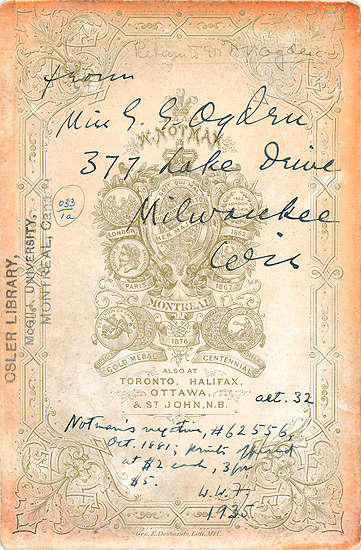 Return to Dr Ogden
from
Miss E. E. Ogden
377 Lake Drive
Milwaukee
Wis
W. NOTMAN
033
1a
OSLER LIBRARY,
McGILL UNIVERSITY,
MONTREAL, Canada
LONDON
1862
PARIS
1867
MONTREAL
1876
GOLD MEDAL CENTENNIAL
ALSO AT
TORONTO, HALIFAX,
OTTAWA,
& ST JOHN, N.B.
aet. 32
Notman's negative, #62556,
Oct. 1881; prints offered
at $2 each, 3 for
$5.
W.W.F.
1935
Geo. E. Desbarats, Lith. Mtl.